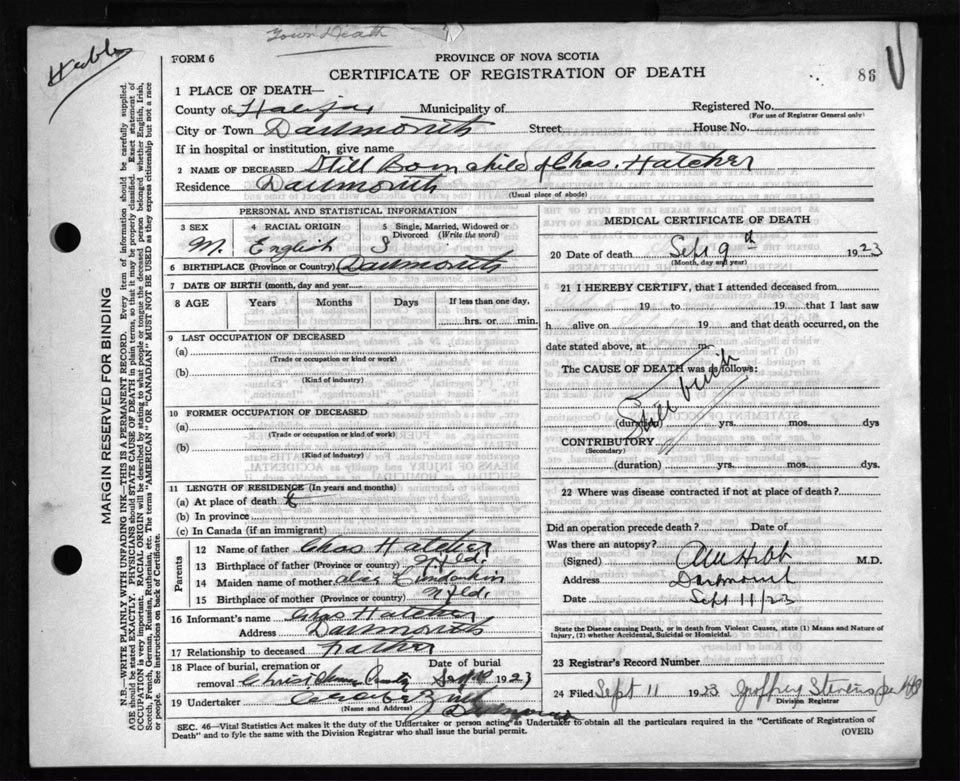 Town Death
FORM 6
PROVINCE OF NOVA SCOTIA
CERTIFICATE OF REGISTRATION OF DEATH
86
1 PLACE OF DEATH—
County of Halifax Municipality of
Registered No.
(For use of Registrar General only)
City or Town Dartmouth Street House No.
If in hospital or institution, give name
2 NAME OF DECEASED Still Born child of Chas. Hatcher
Residence Dartmouth
(Usual place of abode)
PERSONAL AND STATISTICAL INFORMATION
3 SEX 4 RACIAL ORIGIN 5 Single, Married, Widowed or
Divorced (Write the word)
M. English S
6 BIRTHPLACE (Province or Country) Dartmouth
7 DATE OF BIRTH (month, day and year)
8 AGE Years Months Days If less than one day,
hrs. or min.
9 LAST OCCUPATION OF DECEASED
(a)
(Trade or occupation or kind or work)
(b)
(Kind of industry)
10 FORMER OCCUPATION OF DECEASED
(a)
(Trade or occupation or kind of work)
(b)
(Kind of industry)
11 LENGTH OF RESIDENCE (In years and months)
(a) At place of death
(b) In province
(c) In Canada (if an immigrant)
Parents
12 Name of father Chas Hatcher
13 Birthplace of father (Province or country) Nfld.
14 Maiden name of mother
15 Birthplace of mother (Province or country) Nfld.
16 Informant's name Chas Hatcher
Address Dartmouth
17 Relationship to deceased Father
18 Place of burial, cremation or Date of burial
removal Christ Church 1923
19 Undertaker
(Name and Address)
Dartmouth
MEDICAL CERTIFICATE OF DEATH
20 Date of death Sept 9th 1923
(Month, day and year)
21 I HEREBY CERTIFY, that I attended deceased from
19 to 19 that I last saw
h alive on 19 and that death occurred, on the
date stated above, at m.
The CAUSE OF DEATH was as follows:
Still birth
(duration) yrs. mos. dys
CONTRIBUTORY
(Secondary)
(duration) yrs. mos. dys.
22 Where was disease contracted if not at place of death?
Did an operation precede death? Date of
Was there an autopsy?
(Signed) M.D.
Address Dartmouth
Date Sept 11/23
State the Disease causing Death, or in death from Violent Causes, state (1) Means and Nature of
Injury, (2) whether Accidental, Suicidal or Homicidal.
23 Registrar's Record Number
24 Filed Sept 11 1923 Geoffrey Stevens
Division Registrar
SEC. 46—Vital Statistics Act makes it the duty of the Undertaker or person acting as Undertaker to obtain all the particulars required in the "Certificate of Registration of
Death" and to fyle the same with the Division Registrar who shall issue the burial permit.
(OVER)
MARGIN RESERVED FOR BINDING
N.B.—WRITE PLAINLY WITH UNFADING INK—THIS IS A PERMANENT RECORD. Every item of information should be carefully supplied.
AGE should be stated EXACTLY. PHYSICIANS should STATE CAUSE OF DEATH in plain terms, so that it may be properly classified. Exact statement of
OCCUPATION is very important. RACIAL ORIGIN will be described by stating to what people or tongue the deceased person belonged whether English, Irish,
Scotch, French, German, Russian, Ruthenian, etc. The terms "AMERICAN" OR "CANADIAN" MUST NOT BE USED as they express citizenship but not a race
or people. See instructions on back of Certificate.